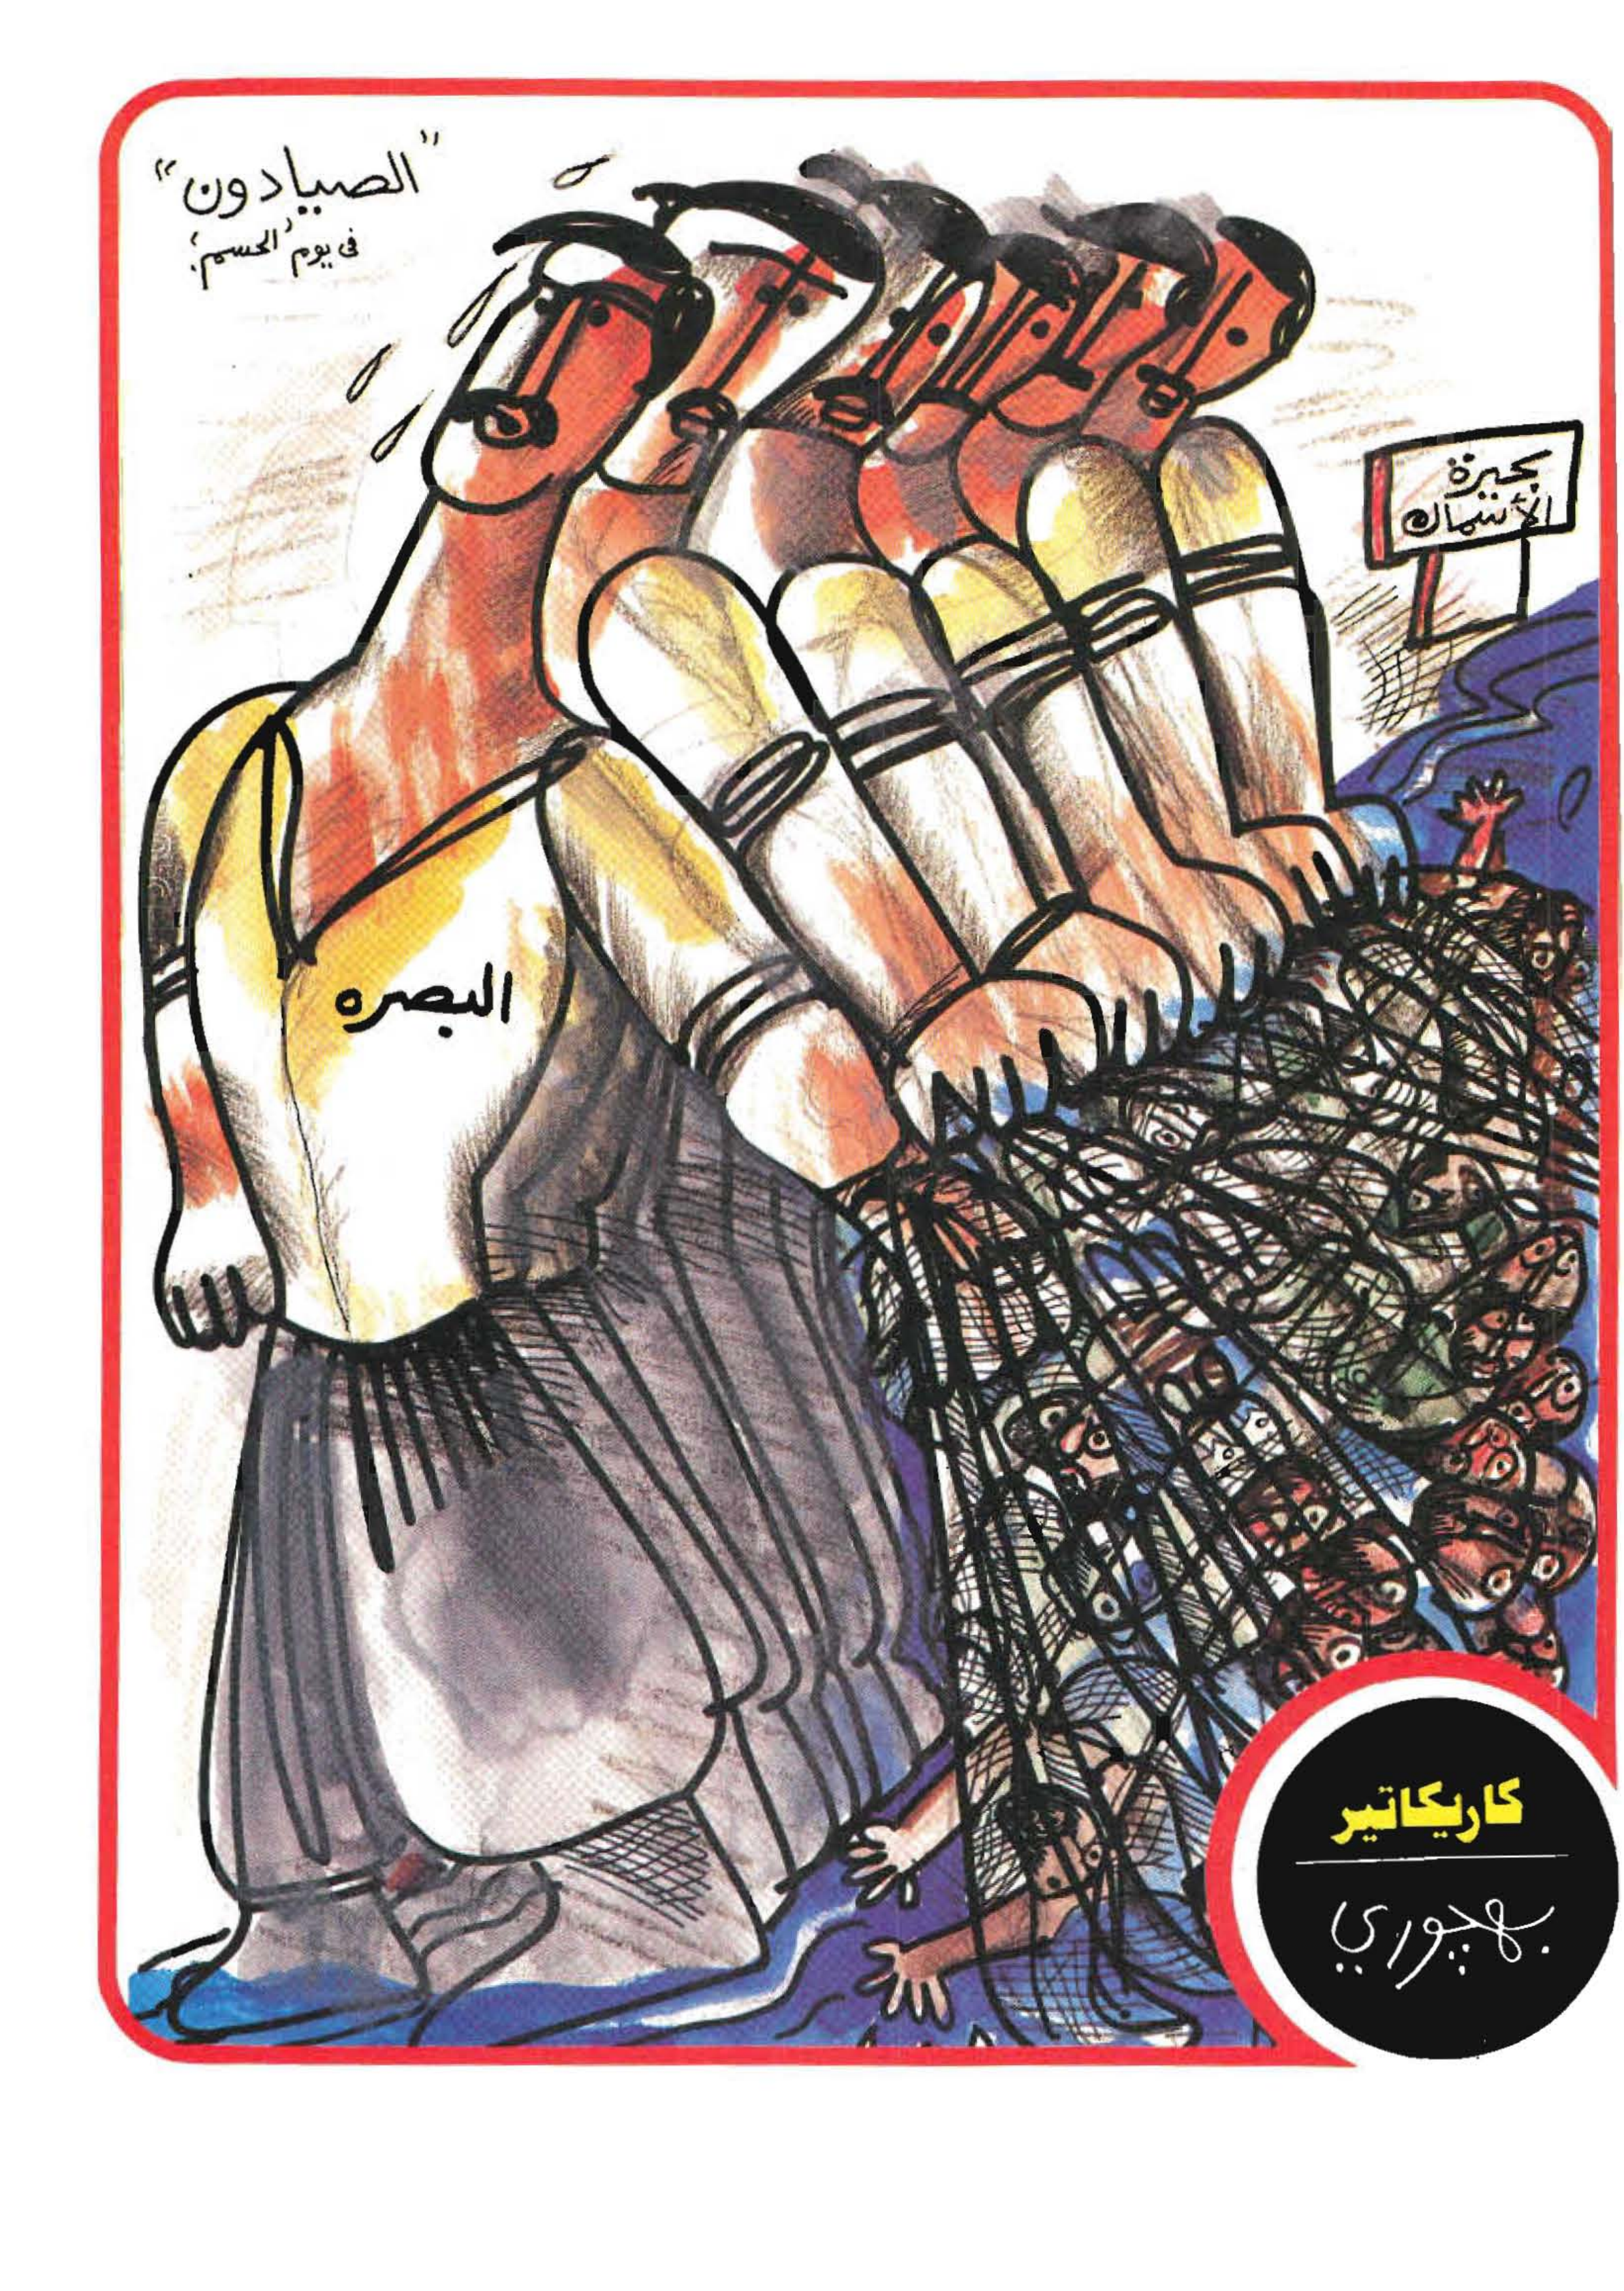 "الصيادون"
في يوم "الحسم"!
بحيرة
الأسماك
البصره
كاريكاتير
بهجوري